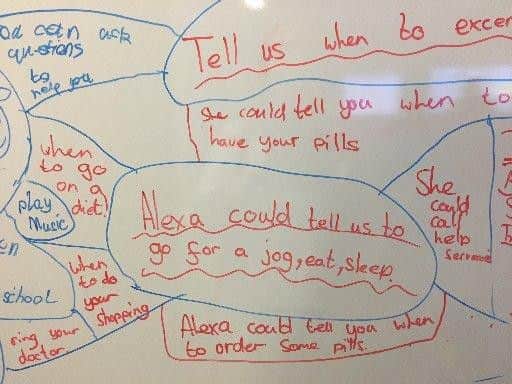 can ask
questions
to
help you
Tell us when to
She could tell you when to
have your pills
when
to go
on a
diet!
play
Music
Alexa could tell us to
go for a jog, eat, sleep.
She
could
call
help
when
to do
your
shopping
school
ring your
doctor
Alexa could tell you when
to order some pills.